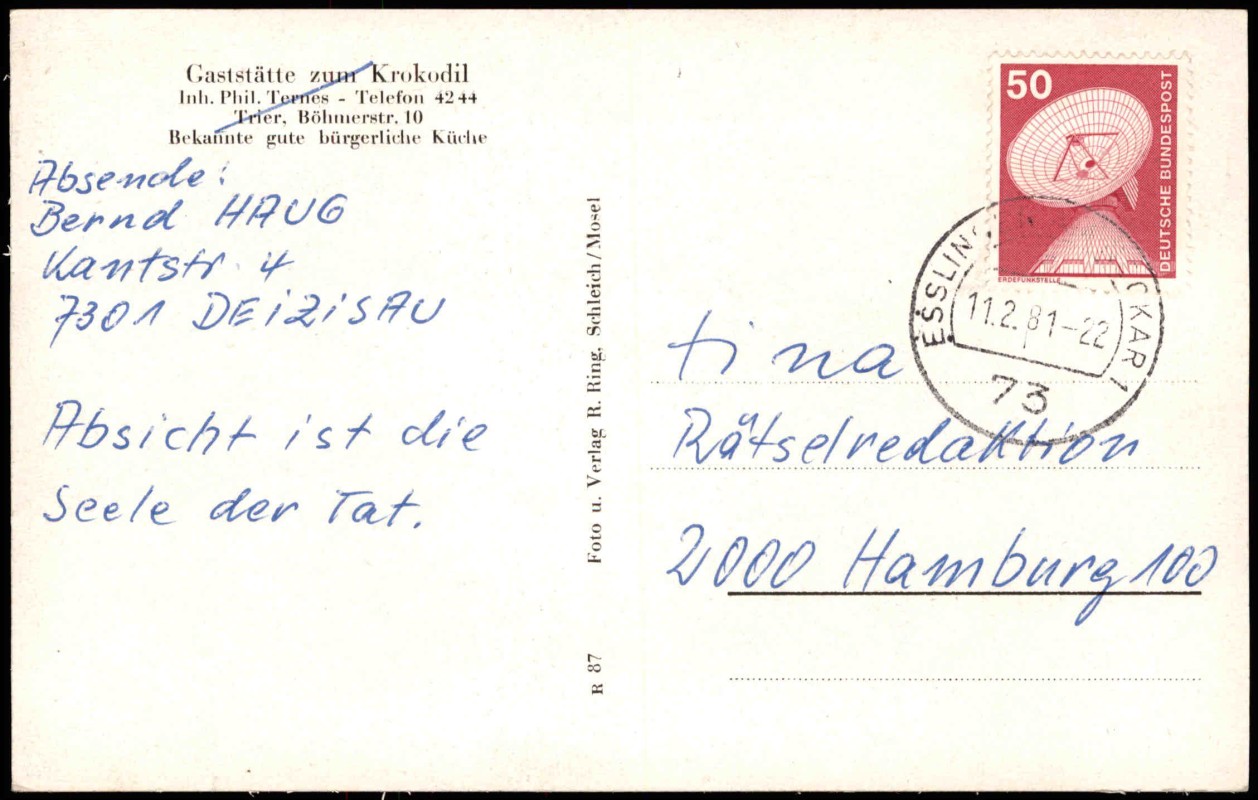 Gaststätte zum Krokodil
Inh. Phil. Ternes - Telefon 42 44
Trier, Böhmerstr. 10
Bekannte gute bürgerliche Küche
Absende:
Bernd HAUG
Kantstr. 4
7301 DEiZiSAU
Absicht ist die
Seele der Tat.
Foto u. Verlag R. Ring, Schleich/Mosel
R 87
50
DEUTSCHE BUNDESPOST
ERDEFUNKSTELLE
11.2.81-22
73
tina
Rätselredaktion
2000 Hamburg 100